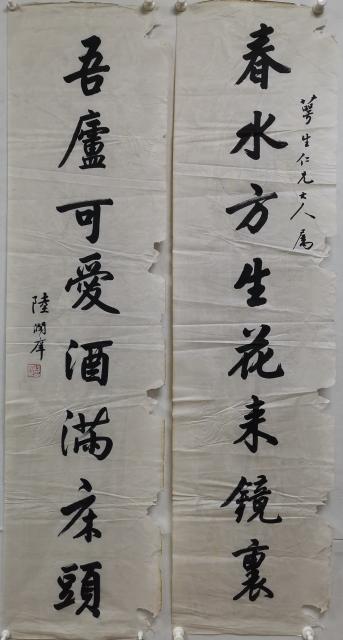 萼生仁兄大人属
春水方生花来鏡裏
吾廬可愛酒滿床頭
陸潤庠